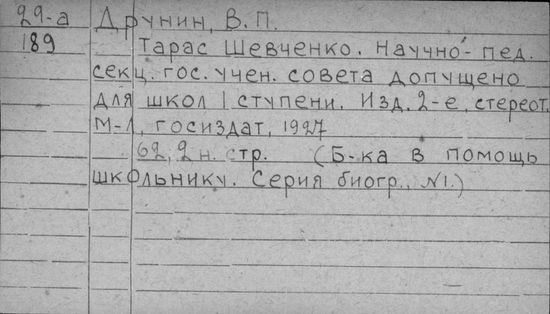 29-а Друнин, В. П.
189 Тарас Шевченко. Научно-пед.
секц. гос. учен. совета допущено
для школ I ступени. Изд. 2-е, стереот.
М-Л, госиздат, 1927
62, 2 н. стр. (Б-ка в помощь
школьнику. Серия биогр., №1.)